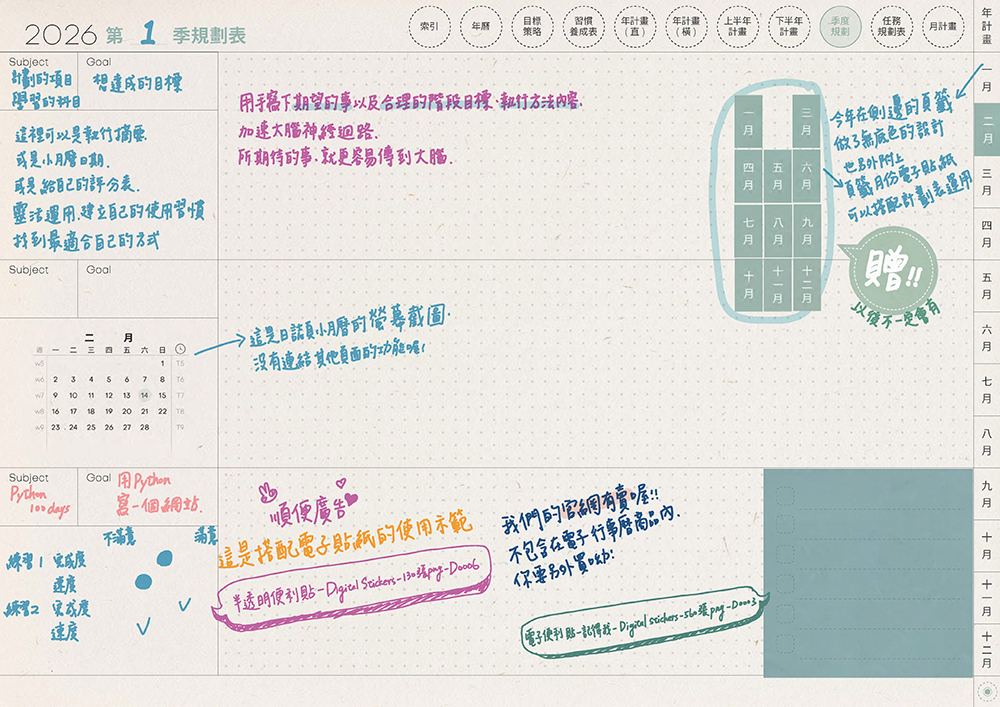 2026 第 1 季規劃表
索引
年曆
目標
策略
習慣
養成表
年計畫
(直)
年計畫
(橫)
上半年
計畫
下半年
計畫
季度
規劃
任務
規劃表
月計畫
年計畫
一月
二月
三月
四月
五月
六月
七月
八月
九月
十月
十一月
十二月
Subject
計劃的項目
學習的科目
Goal
想達成的目標
這裡可以是執行摘要
或是小月曆日期.
或是給自己的評分表.
靈活運用.建立自己的使用習慣
找到最適合自己的方式
用手寫下期望的事以及合理的階段目標、執行方法內容.
加速大腦神經迴路.
所期待的事、就更容易傳到大腦.
一月
三月
四月
五月
六月
七月
八月
九月
十月
十一月
十二月
今年在側邊的頁籤
做了無底色的設計
也另外附上
頁籤月份電子貼紙
可以搭配計劃表運用
贈!!
以後不一定會有
Subject
Goal
二 月
週 一 二 三 四 五 六 日
W5 1 T5
W6 2 3 4 5 6 7 8 T6
W7 9 10 11 12 13 14 15 T7
W8 16 17 18 19 20 21 22 T8
W9 23 24 25 26 27 28 T9
這是日誌頁小月曆的螢幕截圖.
沒有連結其他頁面的功能喔!
Subject
Python
100days
Goal
用Python
寫一個網站.
不滿意 滿意
練習1 完成度
速度
練習2 完成度
速度
順便廣告
這是搭配電子貼紙的使用示範
半透明便利貼-Digital Stickers-130張png-D0006
我們的官網有賣喔!!
不包含在電子行事曆商品內.
你要另外買呦!
電子便利貼-記得我-Digital stickers-560張png-D0003